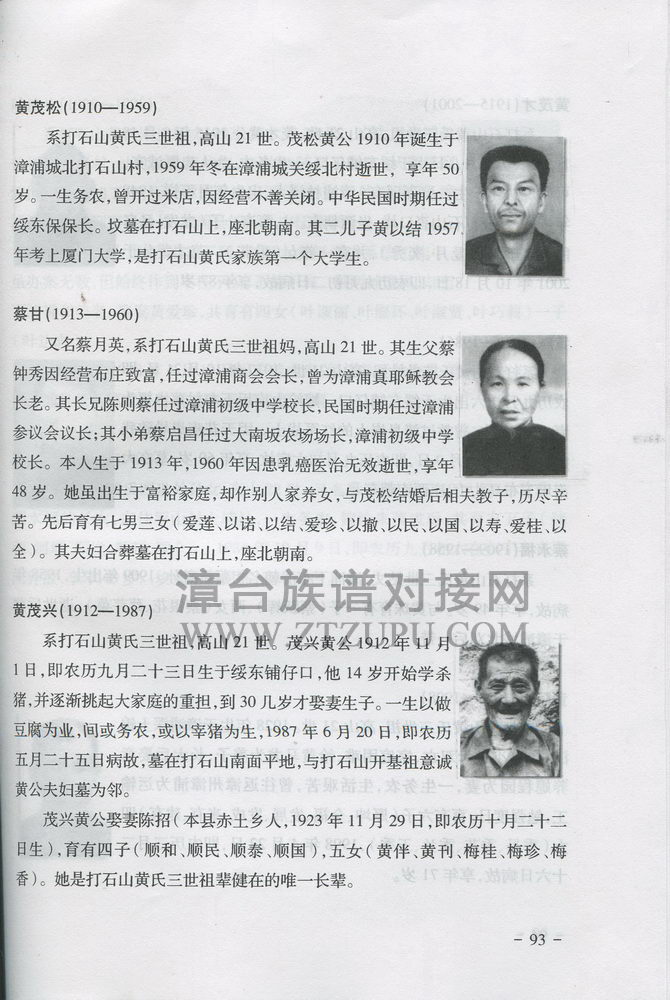 黄茂松(1910—1959)
系打石山黄氏三世祖,高山 21 世。茂松黄公 1910 年诞生于
漳浦城北打石山村,1959 年冬在漳浦城关绥北村逝世，享年 50
岁。一生务农,曾开过米店,因经营不善关闭。中华民国时期任过
绥东保保长。坟墓在打石山上,座北朝南。其二儿子黄以结 1957
年考上厦门大学,是打石山黄氏家族第一个大学生。
蔡甘(1913—1960)
又名蔡月英,系打石山黄氏三世祖妈,高山 21 世。其生父蔡
钟秀因经营布庄致富,任过漳浦商会会长,曾为漳浦真耶稣教会
长老。其长兄陈则蔡任过漳浦初级中学校长,民国时期任过漳浦
参议会议长;其小弟蔡启昌任过大南坂农场场长,漳浦初级中学
校长。本人生于 1913 年,1960 年因患乳癌医治无效逝世,享年
48 岁。她虽出生于富裕家庭,却作别人家养女,与茂松结婚后相夫教子,历尽辛
苦。先后育有七男三女(爱莲、以诺、以结、爱珍、以撤、以民、以国、以寿、爱桂、以
全)。其夫妇合葬墓在打石山上,座北朝南。
漳台族谱对接网
WWW.ZTZUPU.COM
黄茂兴(1912—1987)
系打石山黄氏三世祖,高山 21 世。茂兴黄公 1912 年 11 月
1 日,即农历九月二十三日生于绥东铺仔口,他 14 岁开始学杀
猪,并逐渐挑起大家庭的重担,到 30 几岁才娶妻生子。一生以做
豆腐为业,间或务农,或以宰猪为生,1987 年 6 月 20 日,即农历
五月二十五日病故,墓在打石山南面平地,与打石山开基祖意诚
黄公夫妇墓为邻。
茂兴黄公娶妻陈招(本县赤土乡人,1923 年 11 月 29 日,即农历十月二十二
日生),育有四子(顺和、顺民、顺泰、顺国),五女(黄伴、黄刊、梅桂、梅珍、梅
香)。她是打石山黄氏三世祖辈健在的唯一长辈。
- 93 -